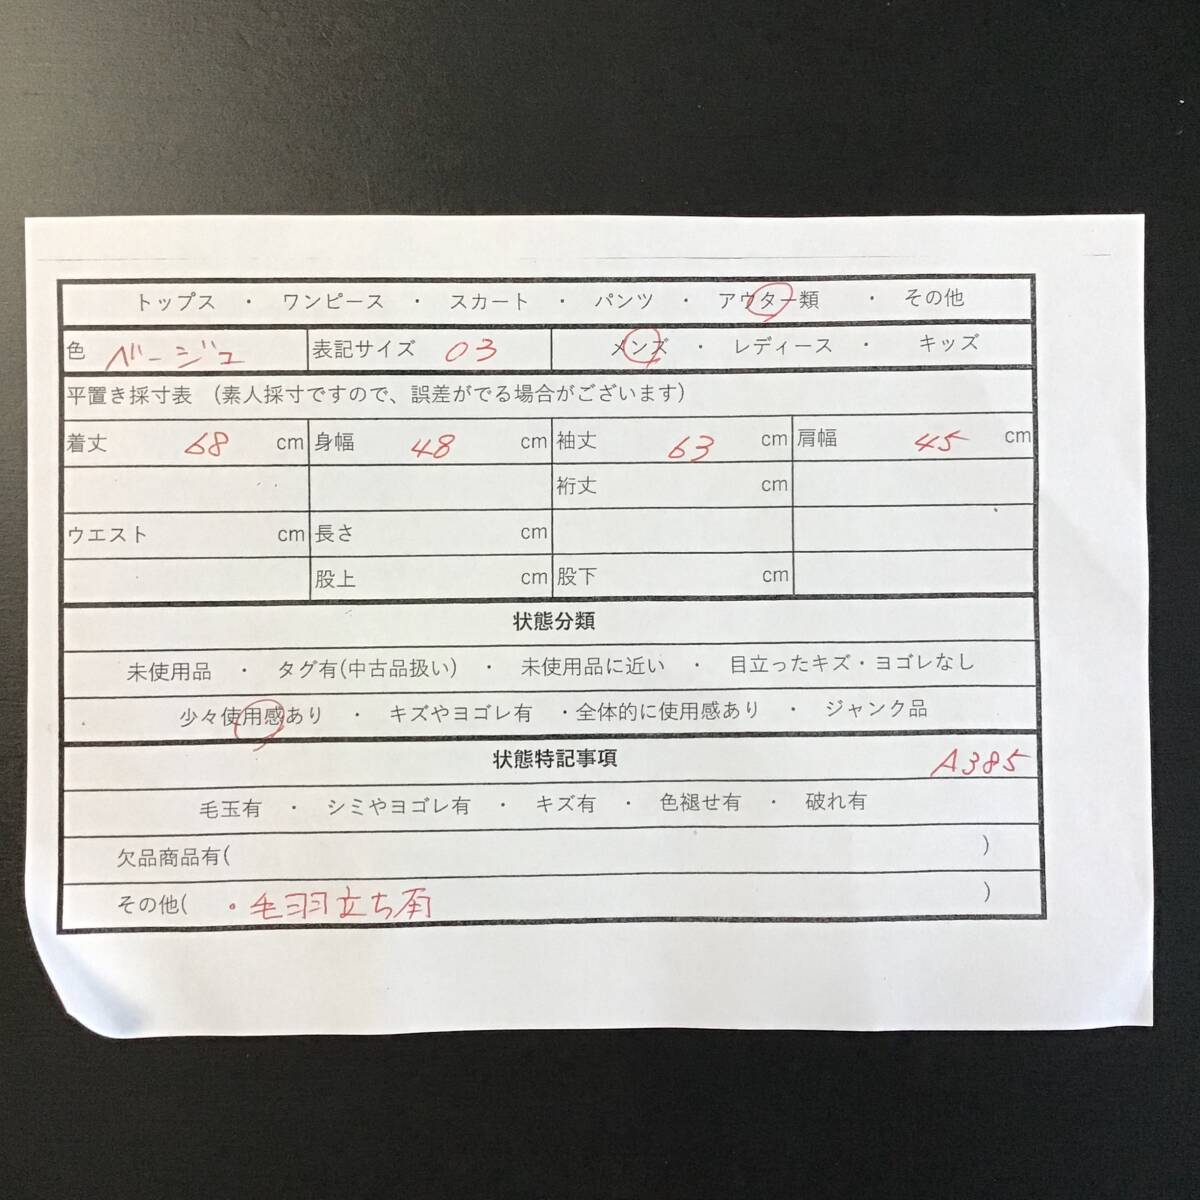 トップス ・ ワンピース ・ スカート ・ パンツ ・ アウター類 ・ その他
色 ベージュ 表記サイズ 03 メンズ ・ レディース ・ キッズ
平置き採寸表 (素人採寸ですので、誤差がでる場合がございます)
着丈 68 cm 身幅 48 cm 袖丈 63 cm 肩幅 45 cm
裄丈 cm
ウエスト cm 長さ cm
股上 cm 股下 cm
状態分類
未使用品 ・ タグ有(中古品扱い) ・ 未使用品に近い ・ 目立ったキズ・ヨゴレなし
少々使用感あり ・ キズやヨゴレ有 ・全体的に使用感あり ・ ジャンク品
状態特記事項 A385
毛玉有 ・ シミやヨゴレ有 ・ キズ有 ・ 色褪せ有 ・ 破れ有
欠品商品有( )
その他( ・毛羽立ち有 )